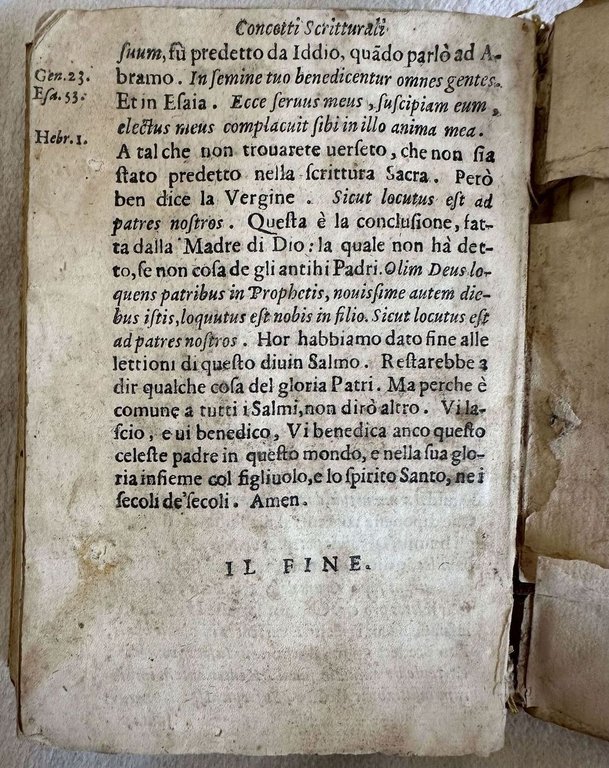 Concetti Scritturali
ſuum, fù predetto da Iddio, quãdo parlò ad A-
Gen. 23. bramo. In ſemine tuo benedicentur omnes gentes.
Eſa. 53. Et in Eſaia. Ecce ſeruus meus, ſuſcipiam eum,
electus meus complacuit ſibi in illo anima mea.
Hebr. 1. A tal che non trouarete uerſeto, che non ſia
ſtato predetto nella ſcrittura Sacra. Però
ben dice la Vergine. Sicut locutus eſt ad
patres noſtros. Queſta è la concluſione, fat-
ta dalla Madre di Dio: la quale non hà det-
to, ſe non coſa de gli antihi Padri. Olim Deus lo-
quens patribus in Prophetis, nouiſſime autem die-
bus iſtis, loquutus eſt nobis in filio. Sicut locutus eſt
ad patres noſtros. Hor habbiamo dato fine alle
lettioni di queſto diuin Salmo. Reſtarebbe a
dir qualche coſa del gloria Patri. Ma perche è
comune a tutti i Salmi, non dirò altro. Vi la-
ſcio, e ui benedico, Vi benedica anco queſto
celeſte padre in queſto mondo, e nella ſua glo-
ria inſieme col figliuolo, e lo ſpirito Santo, ne i
ſecoli de' ſecoli. Amen.
IL FINE.